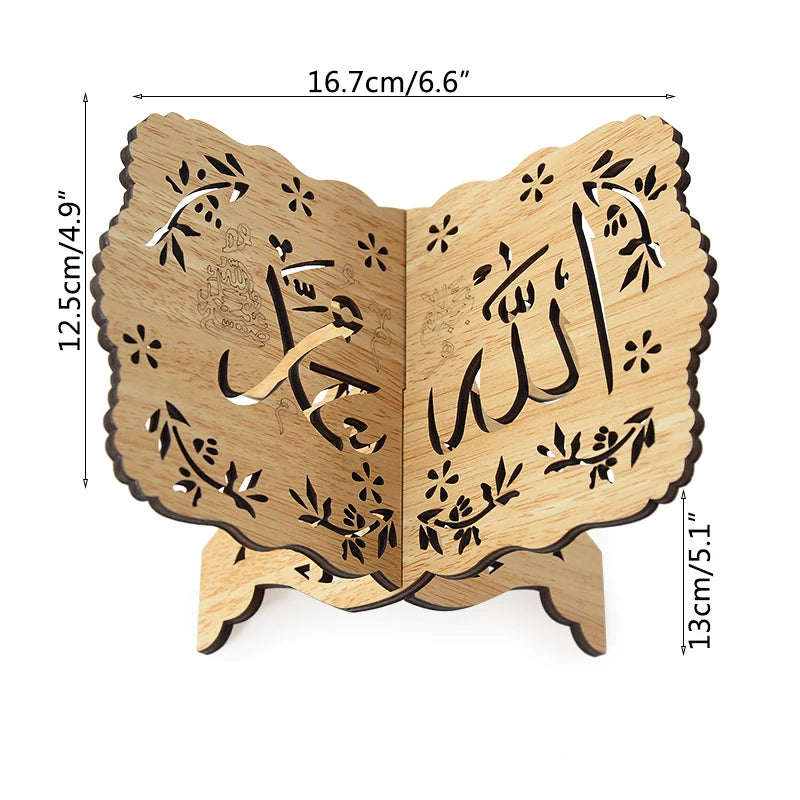 16.7cm/6.6″
12.5cm/4.9″
محمد
الله
13cm/5.1″